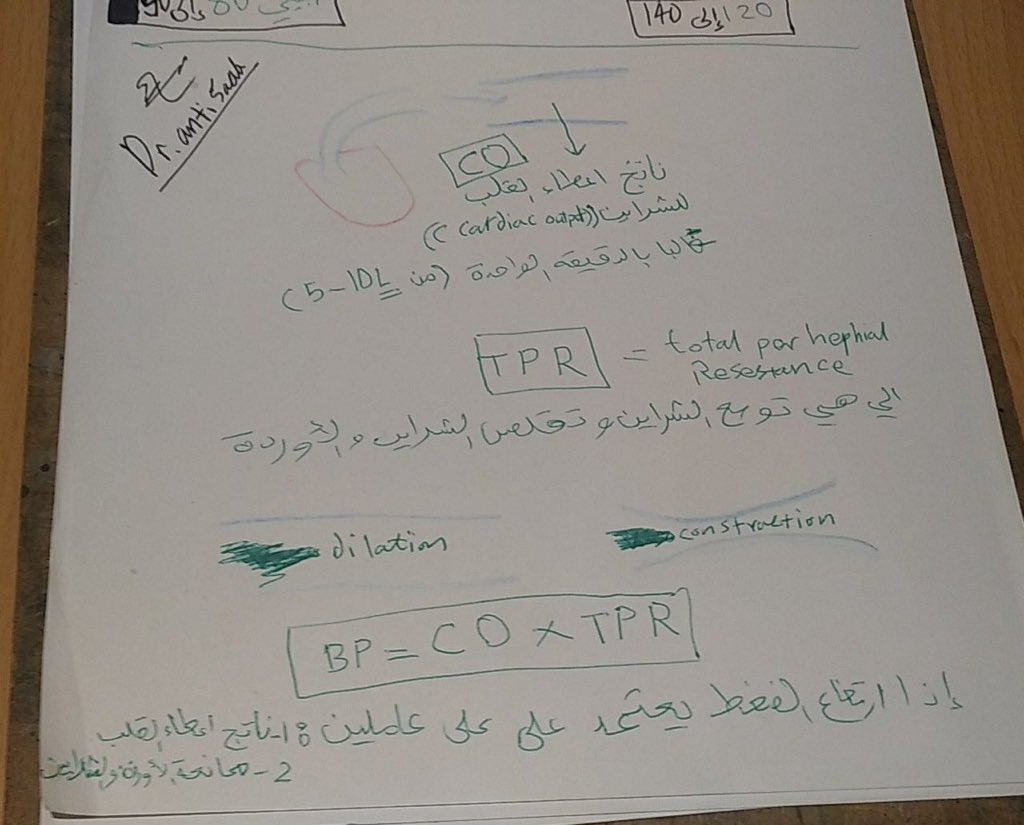 80 إلى 90
120 إلى 140
Dr. anti Saah
CO
ناتج اعطاء القلب
للشراين ((cardiac output))
غالبا بالدقيقه الواحدة (من 5-10L)
TPR = total par hephial
Resestance
الي هي توسع الشراين و تقلص الشراين و الأوردة
dilation
constraction
BP = CO × TPR
إذا ارتفاع الضغط يعتمد على على عاملين: 1- ناتج اعطاء القلب
2- ممانعة الأوردة والشراين